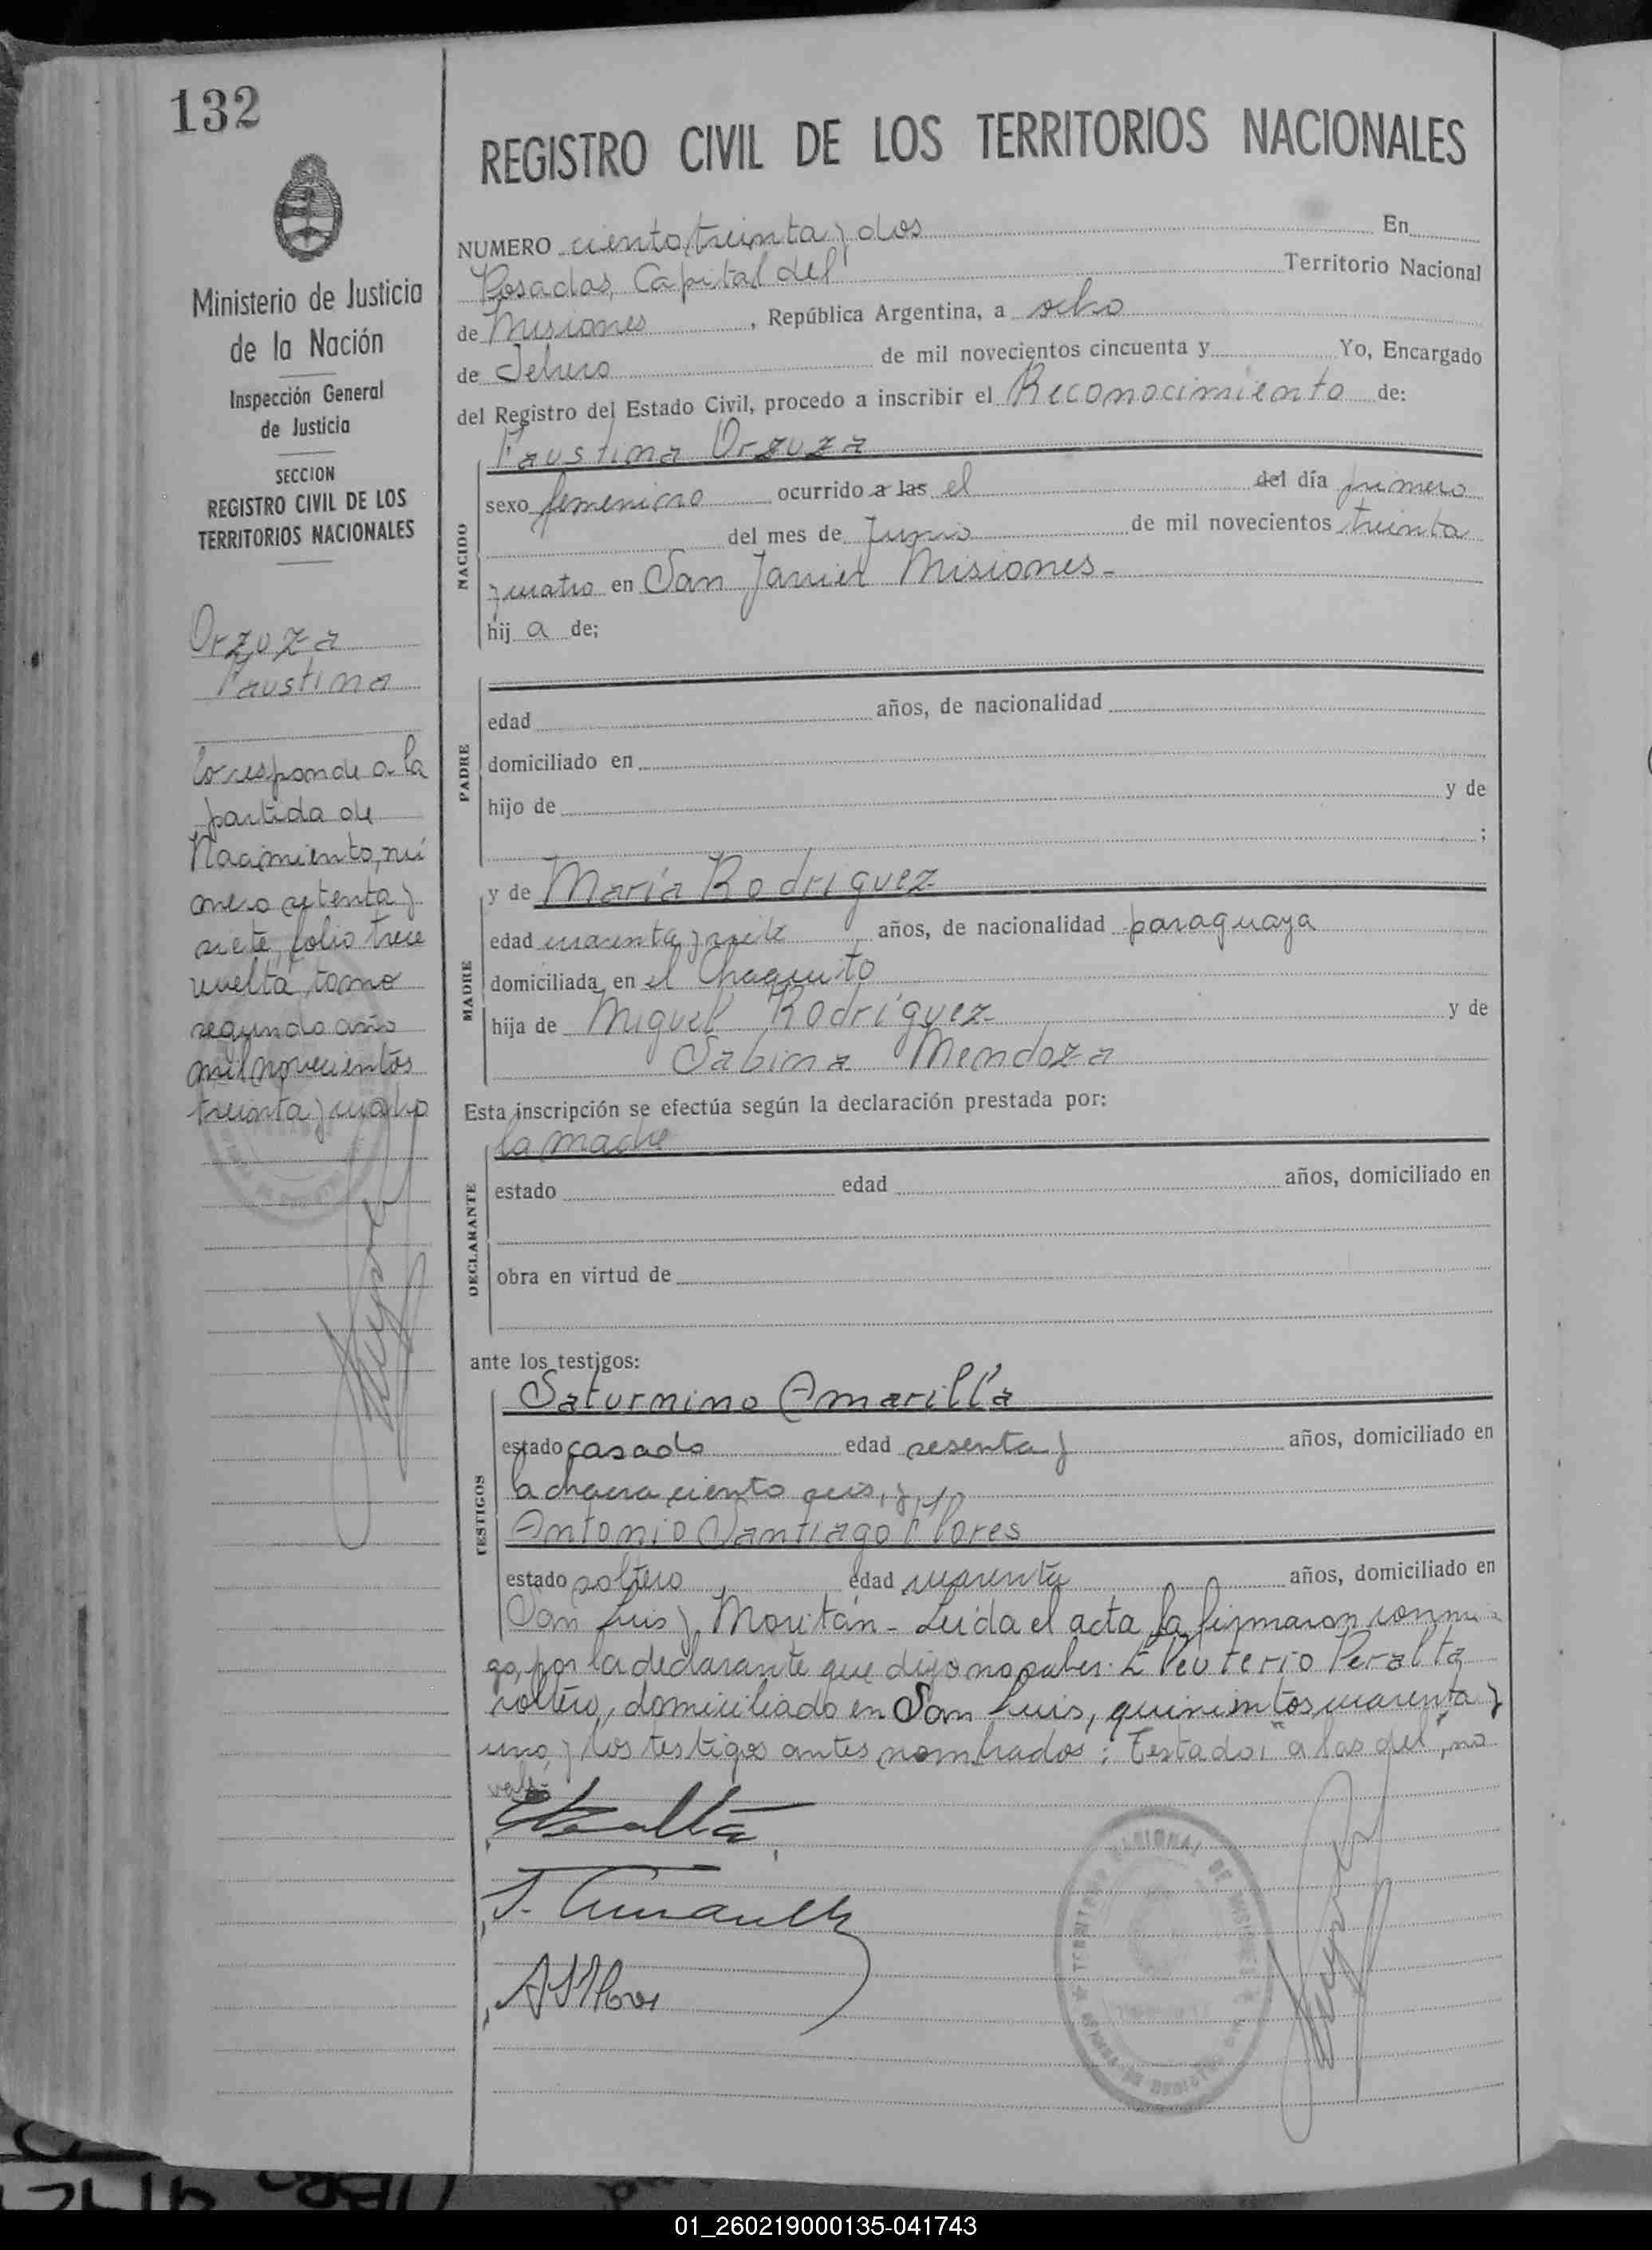 132
REGISTRO CIVIL DE LOS TERRITORIOS NACIONALES
Ministerio de Justicia
de la Nación
Inspección General
de Justicia
SECCION
REGISTRO CIVIL DE LOS
TERRITORIOS NACIONALES
Orzuza
Faustina
Corresponde a la
partida de
Nacimiento, nú
mero setenta y
siete, folio trece
vuelta, tomo
segundo año
mil novecientos
treinta y cuatro
NUMERO ciento treinta y dos En
Posadas, Capital del Territorio Nacional
de Misiones, República Argentina, a ocho
de Febrero de mil novecientos cincuenta y Yo, Encargado
del Registro del Estado Civil, procedo a inscribir el Reconocimiento de:
Faustina Orzuza
NACIDO
sexo femenino ocurrido a las el del día primero
del mes de Junio de mil novecientos treinta
y cuatro en San Javier Misiones-
hij a de;
PADRE
edad años, de nacionalidad
domiciliado en
hijo de y de
;
MADRE
y de María Rodriguez
edad cuarenta y siete años, de nacionalidad paraguaya
domiciliada en el Chaquito
hija de Miguel Rodríguez y de
Sabina Mendoza
Esta inscripción se efectúa según la declaración prestada por:
DECLARANTE
la madre
estado edad años, domiciliado en
obra en virtud de
ante los testigos:
TESTIGOS
Saturnino Amarilla
estado casado edad sesenta y años, domiciliado en
la chacra ciento seis, y,
Antonio Santiago Flores
estado soltero edad cuarenta años, domiciliado en
San Luis y Moritán- Leída el acta la firmaron conmi
go, por la declarante que dijo no saber: Eleuterio Peralta
soltero, domiciliado en San Luis, quinientos cuarenta y
uno, y los testigos antes nombrados: Testado: "a las del", no
vale-
EPeralta
S. Amarilla
ASFlores
TERRITORIO NACIONAL DE MISIONES
01_260219000135-041743